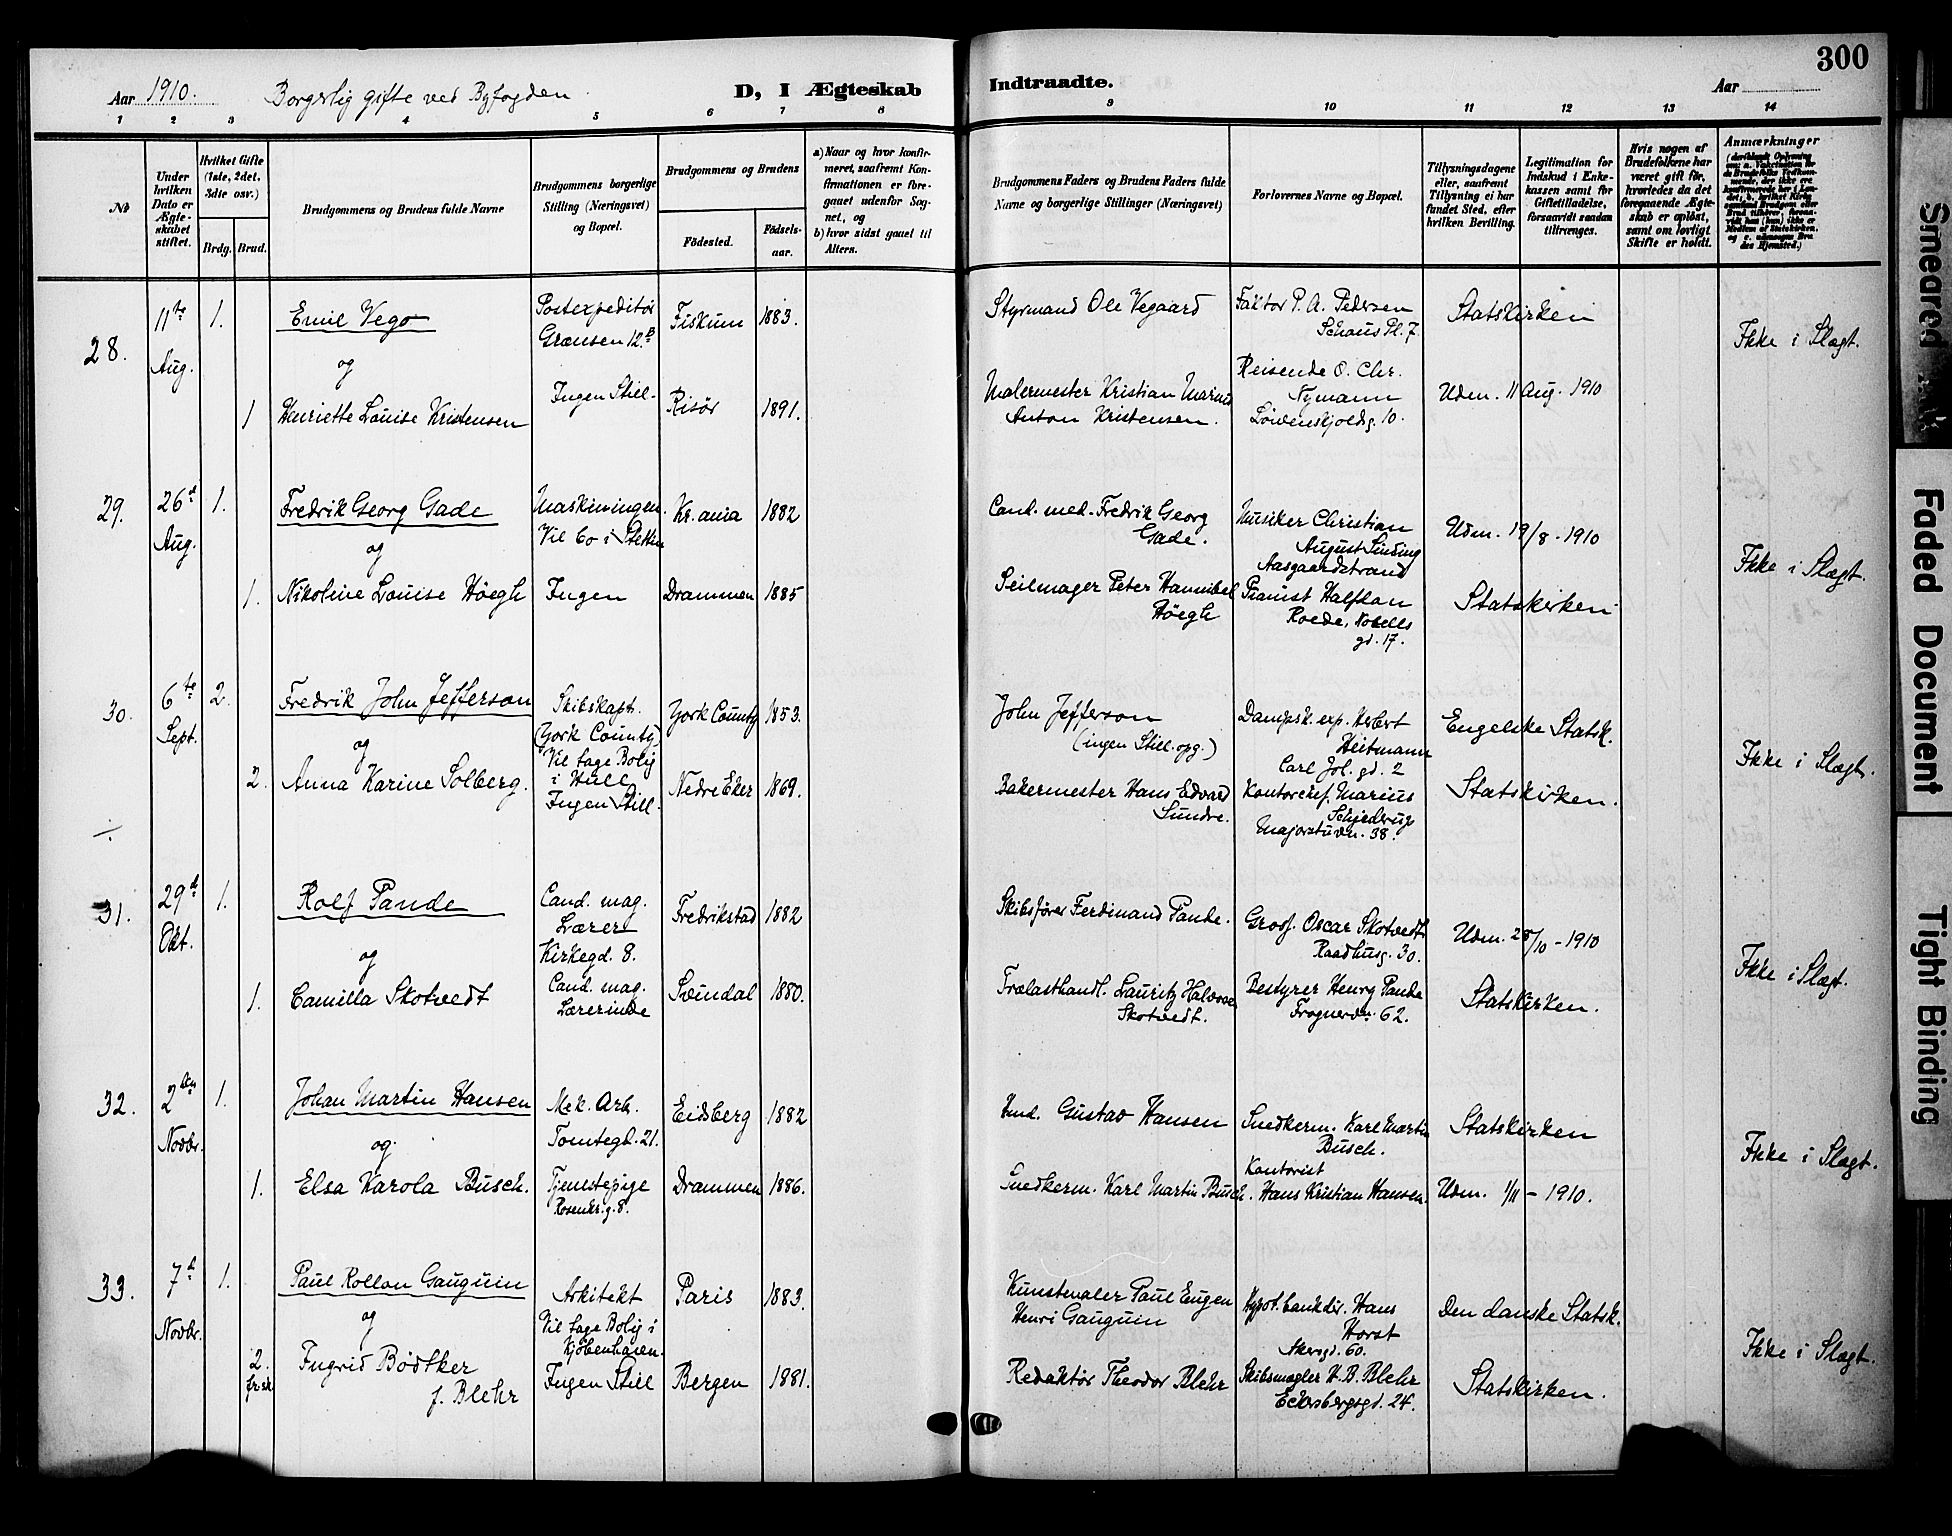 300
Aar 1910. Borgerlig gifte ved Byfogden D, I Ægteskab Indtraadte. Aar
1 2 3 4 5 6 7 8 9 10 11 12 13 14
No
Under hvilken Dato er Ægteskabet stiftet.
Hvilket Gifte (1ste, 2det, 3die osv.)
Brdg. Brud.
Brudgommens og Brudens fulde Navne
Brudgommens borgerlige Stilling (Næringsvei) og Bopæl.
Brudgommens og Brudens
Fødested. Fødselsaar.
a) Naar og hvor konfirmeret, saafremt Konfirmationen er foregaaet udenfor Sognet, og
b) hvor sidst gaaet til Alters.
Brudgommens Faders og Brudens Faders fulde Navne og borgerlige Stillinger (Næringsvei)
Forlovernes Navne og Bopæl.
Tillysningsdagene eller, saafremt Tillysning ei har fundet Sted, efter hvilken Bevilling.
Legitimation for Indskud i Enkekassen samt for Giftetilladelse, forsaavidt saadan tiltrænges.
Hvis nogen af Brudefolkene har været gift før, hvorledes da det foregaaende Ægteskab er opløst, samt om lovligt Skifte er holdt.
Anmærkninger
28. 11te Aug. 1. Emil Vego
Postexpeditør Grænsen 12B
Fiskum 1883.
Styrmand Ole Vegaard
Faktor P. A. Pedersen
Schous Pl. 7.
Statskirken
Ikke i Slægt.
og
1 Henriette Louise Kristensen
Ingen Still.
Risør 1891.
Malermester Kristian Marius
Anton Kristensen.
Reisende O. Chr.
Nymann
Løvenskjoldsg. 10.
Udm. 11 Aug. 1910
29. 26d Aug. 1. Fredrik Georg Gade
Maskiningen.
Vil bo i Stettin
Kr.ania 1882
Cand. med. Fredrik Georg
Gade.
Musiker Christian
August Sinding
Aasgaardstrand
Udm. 19/8 - 1910
Ikke i Slægt.
og
1. Nikoline Louise Høegh
Ingen
Drammen 1885
Seilmager Peter Hannibal
Høegh
Pianist Halfdan
Roede, Nobells
gd. 17.
Statskirken
30. 6te Sept. 2. Fredrik John Jefferson
Skibskapt.
(York County)
Vil tage Bolig
i Hull
York County 1853.
John Jefferson
(ingen Still. opg.)
Dampsk. exp. Herbert
Heitmann
Carl Joh. gd. 2
Engelske Statsk.
Ikke i Slægt.
og
2. Anna Karine Solberg.
Ingen Still.
Nedre Eker 1869.
Bakermester Hans Edvard
Sundre.
Kontorchef. Marius
Schjelderup
Majorstuvn. 38.
Statskirken.
31. 29d Okt. 1. Rolf Pande
Cand. mag.
Lærer
Kirkegd. 8.
Fredrikstad 1882
Skibsfører Ferdinand Pande.
Gross. Oscar Skotvedt
Raadhusg. 30.
Udm. 28/10 - 1910
Ikke i Slægt.
og
1. Camilla Skotvedt
Cand. mag.
Lærerinde
Svindal 1880.
Trælasthandl. Lauritz Halvorsen
Skotvedt.
Bestyrer Henry Pande
Frognervn. 62.
Statskirken.
32. 2den Novbr. 1. Johan Martin Hansen
Mek. Arb.
Tomtegd. 21.
Eidsberg 1882
Gustav Hansen
Snedkerm. Karl Martin
Busch.
Statskirken
Ikke i Slægt.
og
1. Elsa Karola Busch.
Tjenestepige
Rosenkr.g. 8.
Drammen 1886.
Snedkerm. Karl Martin Busch.
Kontorist
Hans Kristian Hansen.
Udm. 1/11 - 1910.
33. 7d Novbr. 1. Paul Rollon Gauguin
Arkitekt
Vil tage Bolig i
Kjöbenhavn.
Paris 1883.
Kunstmaler Paul Eugen
Henri Gauguin
Hypot. bankdir. Hans
Horst
Akersgd. 60.
Den danske Statsk.
Ikke i Slægt.
og
2. fr.sk. Ingrid Bödtker
f. Blehr
Ingen Still
Bergen 1881.
Redaktör Theodor Blehr
Skibsmægler H. B. Blehr
Eckersbergsgd. 24.
Statskirken.
Smeared
Faded Document
Tight Binding